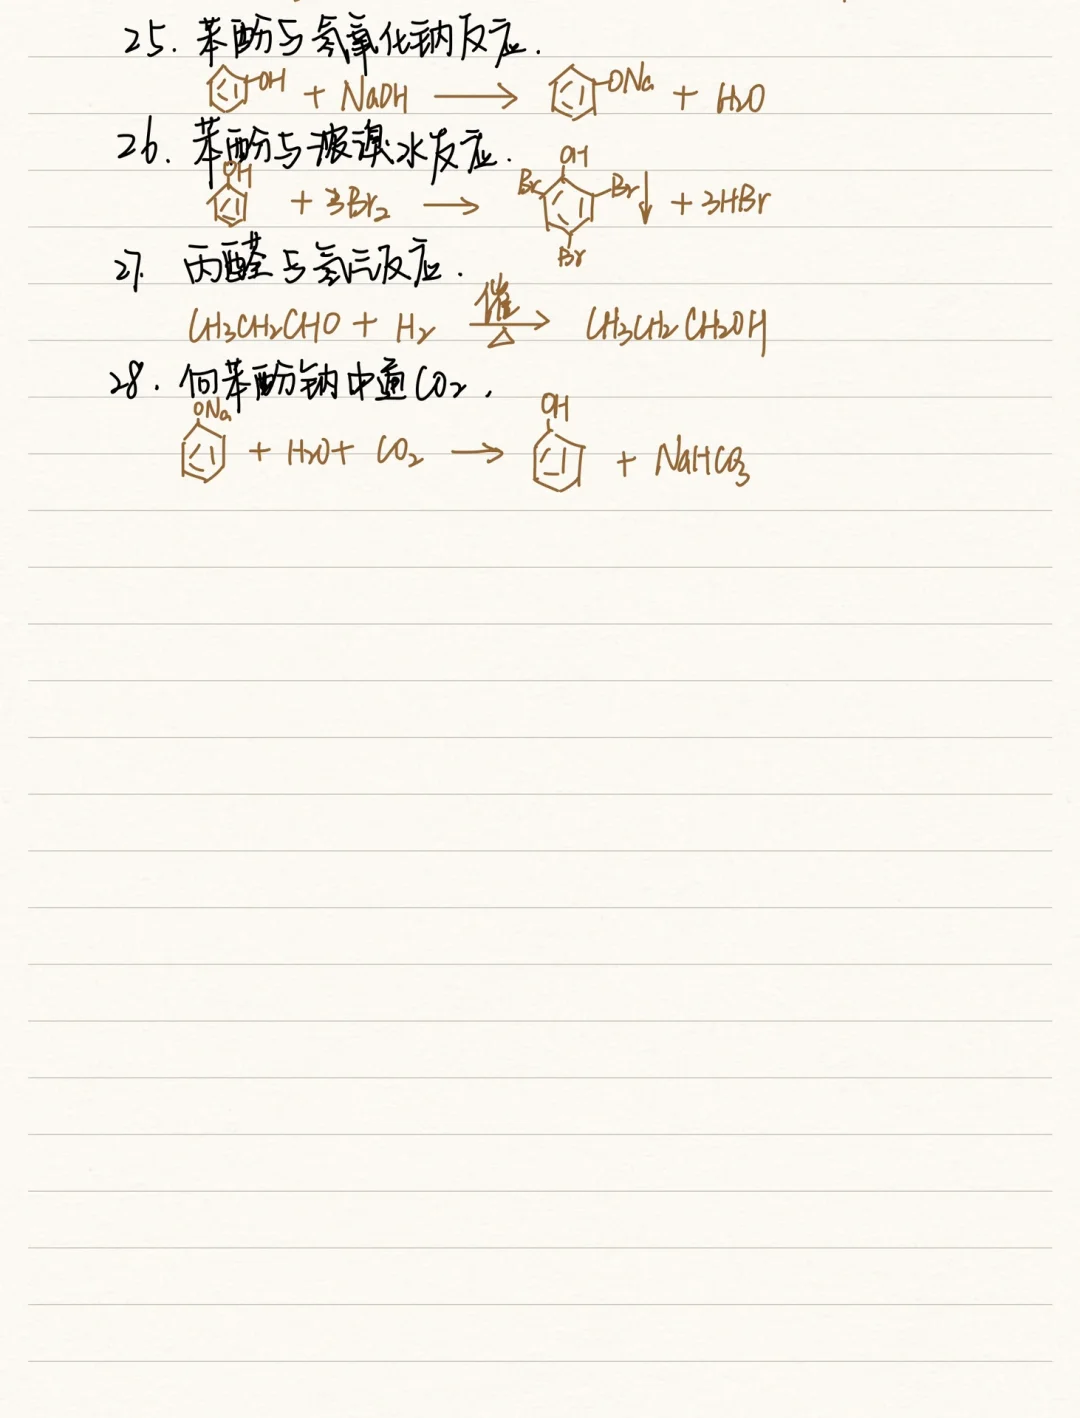 25. 苯酚与氢氧化钠反应.
OH + NaOH → ONa + H₂O
26. 苯酚与浓溴水反应.
OH + 3Br₂ → OH Br Br↓ Br + 3HBr
27. 丙醛与氢气反应.
CH₃CH₂CHO + H₂ 催 △ → CH₃CH₂CH₂OH
28. 向苯酚钠中通CO₂.
ONa + H₂O + CO₂ → OH + NaHCO₃